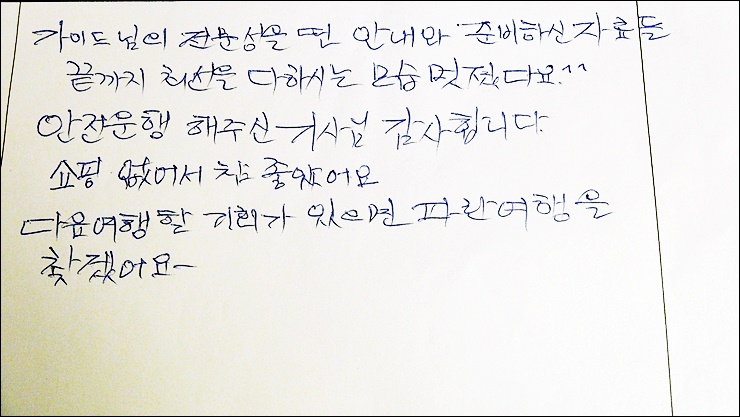 가이드님의 전문성을 띤 안내와 준비하신 자료들
끝까지 최선을 다하시는 모습 멋졌다요.^^
안전운행 해주신 기사님 감사합니다.
쇼핑 없어서 참 좋았어요
다음여행할 기회가 있으면 파란여행을
찾겠어요~